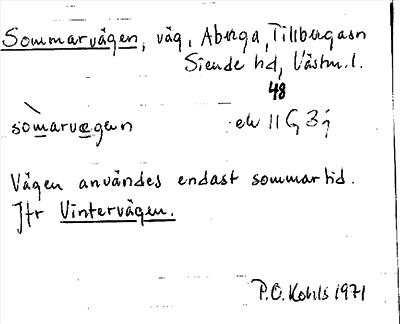 Sommarvägen, väg, Aberga, Tillbergasn
Siende hd, Västm. l.
48
somarvægen ek 11 G 3 j
Vägen användes endast sommartid.
Jfr Vintervägen.
P.O. Kohls 1971